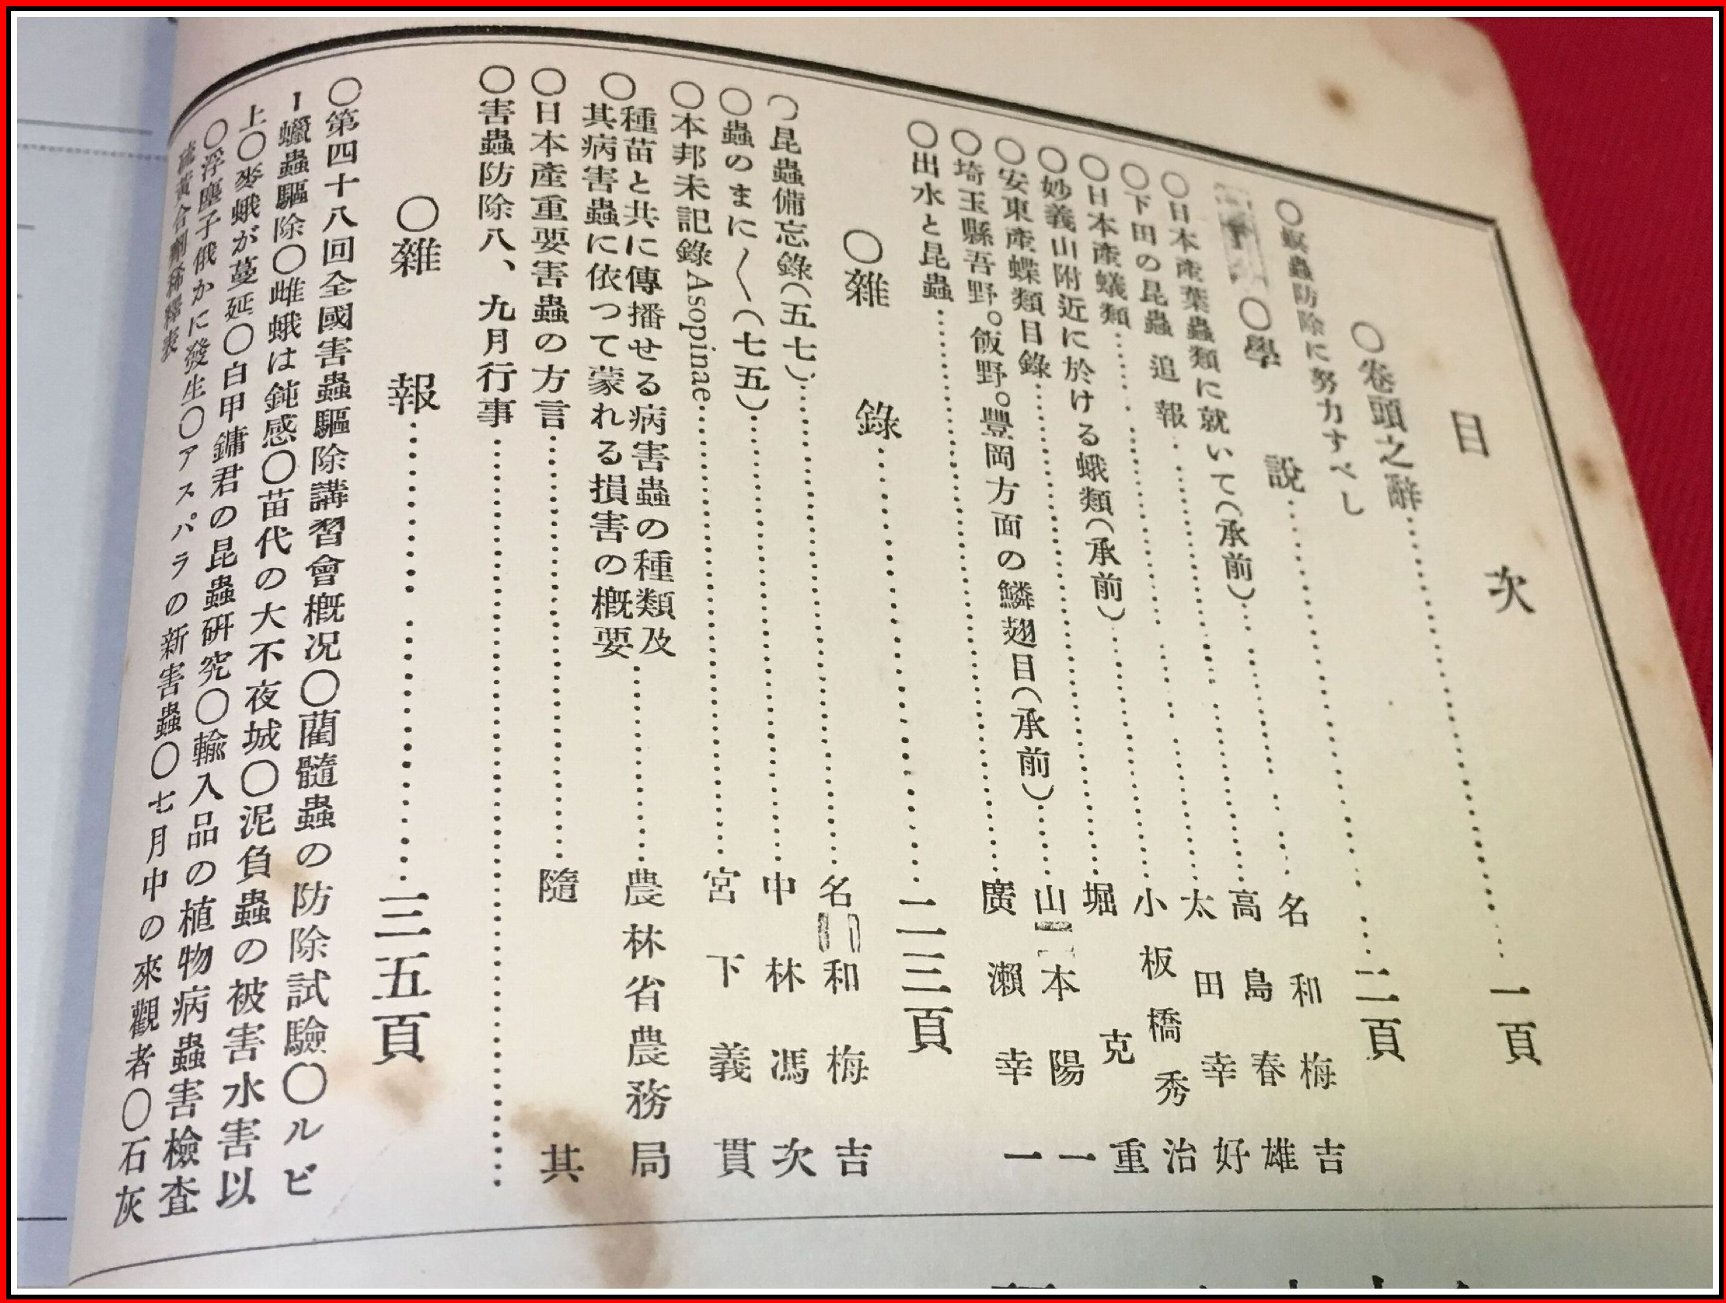 目次
○卷頭之辭……一頁
○螟蟲防除に努力すべし
○學說……二頁
名和梅吉
○日本產葉蟲類に就いて(承前)……高島春雄
○下田の昆蟲追報……太田幸好
○日本產蟻類……小板橋秀治
○妙義山附近に於ける蛾類(承前)……堀克重
○安東產蝶類目錄……山本陽一
○埼玉縣吾野。飯野。豐岡方面の鱗翅目(承前)
○出水と昆蟲……廣瀨幸一
○雜錄……二三頁
○昆蟲備忘錄(五七)……名和梅吉
○蟲のまに〱(七五)……中林馮次
○本邦未記錄Asopinae……宮下義貫
○種苗と共に傳播せる病害蟲の種類及
其病害蟲に依つて蒙れる損害の槪要……農林省農務局
○日本產重要害蟲の方言……隨其
○害蟲防除八、九月行事……
○雜報……三五頁
○第四十八回全國害蟲驅除講習會槪況○藺髓蟲の防除試驗○ルビ
ー蠟蟲驅除○雌蛾は鈍感○苗代の大不夜城○泥負蟲の被害水害以
上○麥蛾が蔓延○白甲鏞君の昆蟲硏究○輸入品の植物病蟲害檢査
○浮塵子俄かに發生○アスパラの新害蟲○七月中の來觀者○石灰
硫黃合劑稀釋表